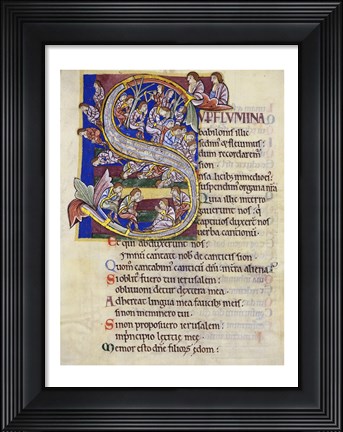 SUP FLUMINA
babilonis illic
sedim' & fleuimus:
dum recordarem'
sion
suspendim' organa nra
Quia illic interro
gauerunt nos: q
captiuos duxert nos
uerba cantionu.
Et qui abduxerunt nos:
ymnu cantate nob de canticis sion
Quom cantabim' canticu dni: in tra aliena
Si oblit' fuero tui ierusalem:
obliuioni detur dextera mea.
Adhereat lingua mea faucib; meis:
si non meminero tui.
Si non proposuero ierusalem:
in principio leticie mee
Memor esto dne filior edom: